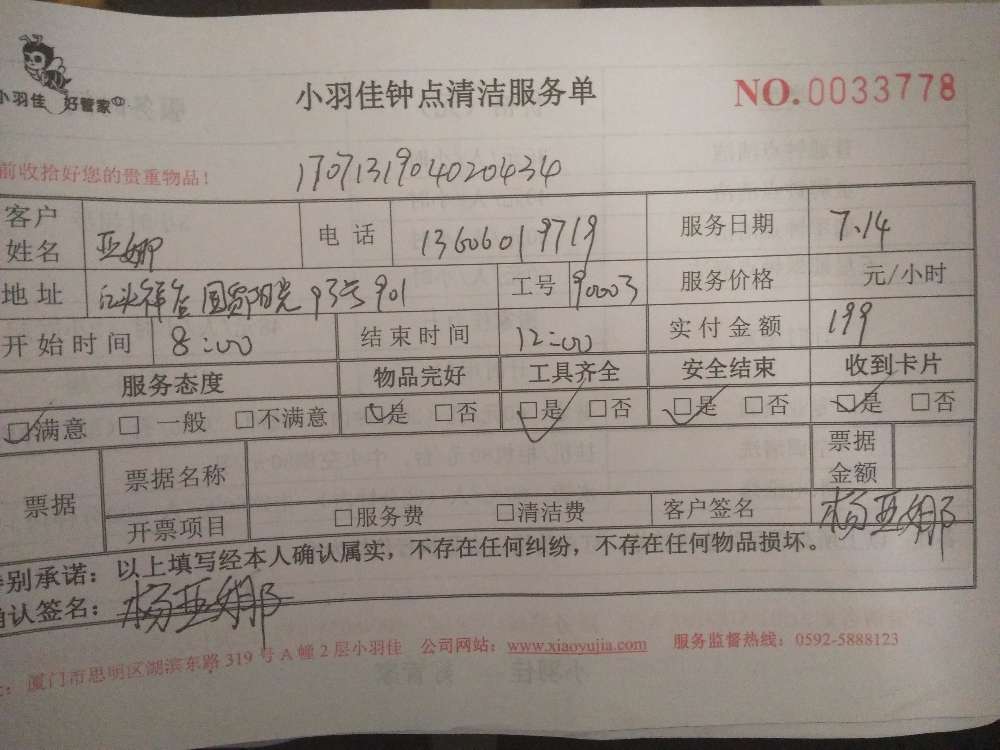 小羽佳 好管家
小羽佳钟点清洁服务单
NO.0033778
前收拾好您的贵重物品!
1707131904020434
客户姓名 亚娜 电话 13606019719 服务日期 7.14
地址 国贸阳光93号901 工号 90003 服务价格 元/小时
开始时间 8:00 结束时间 12:00 实付金额 199
服务态度 物品完好 工具齐全 安全结束 收到卡片
☑满意 □ 一般 □不满意 ☑是 □否 ☑是 □否 ☑是 □否 ☑是 □否
票据 票据名称 票据金额
开票项目 □服务费 □清洁费 客户签名 杨亚娜
特别承诺：以上填写经本人确认属实，不存在任何纠纷，不存在任何物品损坏。
确认签名：杨亚娜
厦门市思明区湖滨东路 319 号 A 幢 2 层小羽佳 公司网站：www.xiaoyujia.com 服务监督热线：0592-5888123